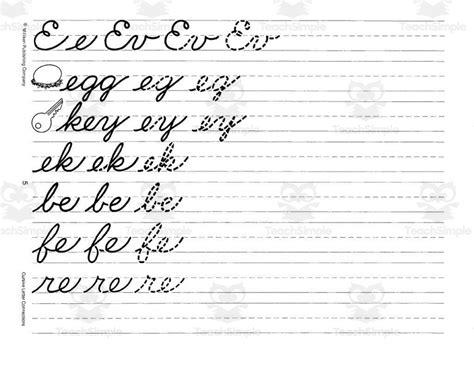 E e Ev Ev Ev
egg eg eg
key ey ey
ek ek ek
be be be
fe fe fe
re re re
© Milliken Publishing Company
5
Cursive Letter Connections
TeachSimple